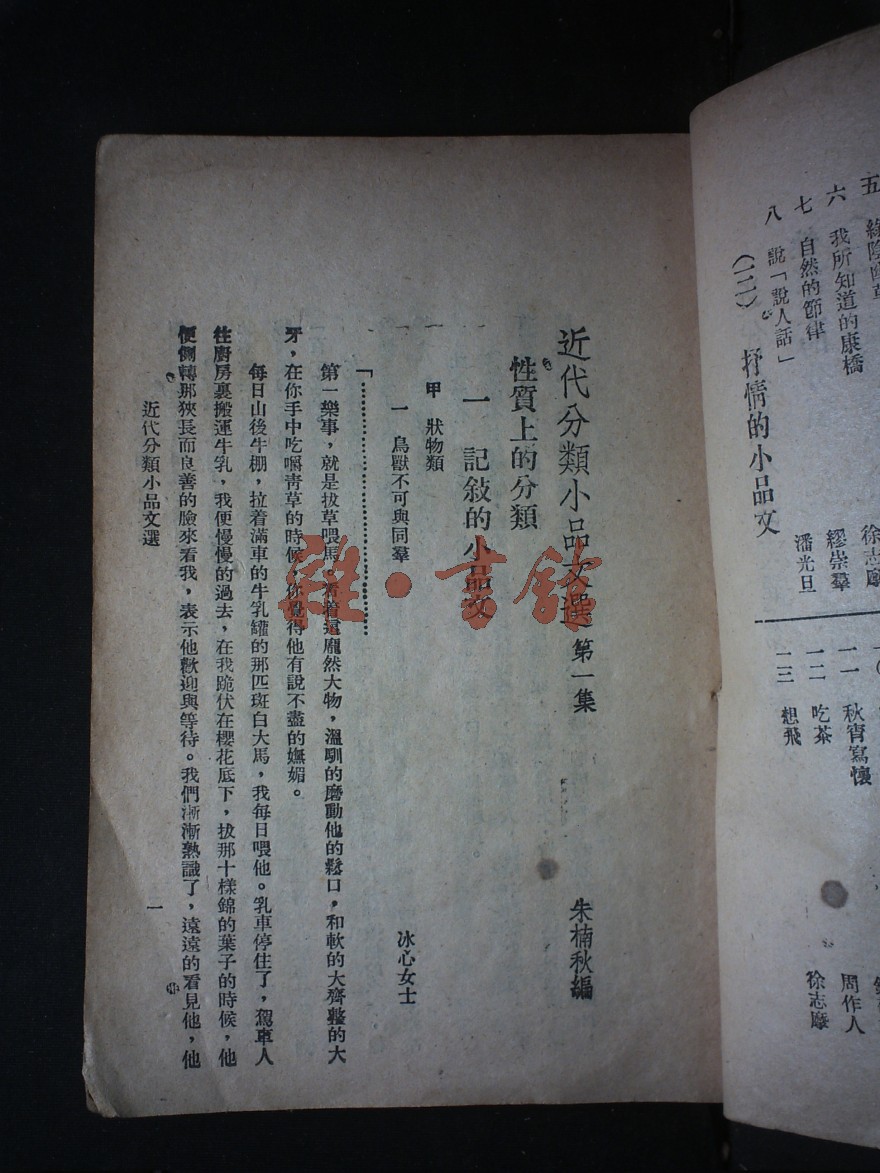 五
徐志摩
六 我所知道的康橋
七 自然的節律 繆崇羣
八 說「說人話」 潘光旦
(二) 抒情的小品文
一一 秋宵寫懷
一二 吃茶 周作人
一三 想飛 徐志摩
近代分類小品文選 第一集 朱楠秋編
性質上的分類
一 記敍的小品文
甲 狀物類
一 鳥獸不可與同羣 冰心女士
「……………………………
第一樂事,就是拔草喂馬。看着這龐然大物,溫馴的磨動他的鬆口,和軟的大齊整的大
牙,在你手中吃嚼青草的時候,你覺得他有說不盡的嫵媚。
每日山後牛棚,拉着滿車的牛乳罐的那匹斑白大馬,我每日喂他。乳車停住了,駕車人
往廚房裏搬運牛乳,我便慢慢的過去,在我跪伏在櫻花底下,拔那十樣錦的葉子的時候,他
便側轉那狹長而良善的臉來看我,表示他歡迎與等待。我們漸漸熟識了,遠遠的看見他,他
近代分類小品文選
一
雜·書館